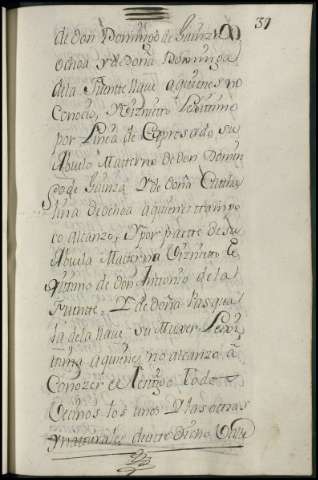 37
de Don Domingo de Gainza
ochoa y de Doña Dominga
dela Fuente Llave aquienes no
Conocio, Viznieto Lexitimo
por Linea de Expresado su
Abuelo Materno de Don Domin
go de Gainza Y de Doña Cathа
lina de ochoa aquienes tampo
co alcanzo, Y por parte de su
Abuela Materna Viznieto Le
xitimo de Don Antonio de la
Fuente, Y de Doña Pasqua
la dela Llave su Muxer Lexi
tima aquienes no alcanzo à
Conozer el testigo Todos
Vecinos los unos Y las otras
Y naturales de este dicho